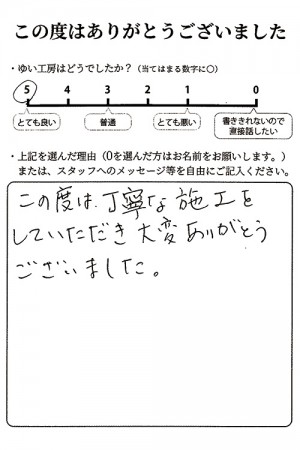 この度はありがとうございました
・ゆい工房はどうでしたか？（当てはまる数字に○）
5 4 3 2 1 0
とても良い 普通 とても悪い 書ききれないので
直接話したい
・上記を選んだ理由（0を選んだ方はお名前をお願いします。）
または、スタッフへのメッセージ等を自由にご記入ください。
この度は、丁寧な施工を
していただき大変ありがとう
ございました。